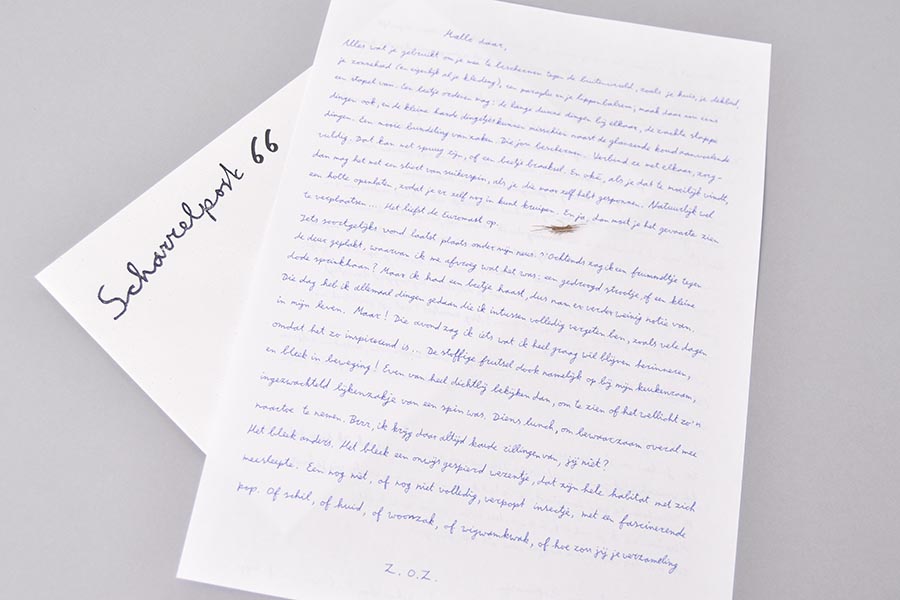 Scharrelpost 66
Hallo daar,
Alles wat je gebruikt om je mee te beschermen tegen de buitenwereld, zoals je huis, je dekbed,
je zonnehoed (en eigenlijk al je kleding), een paraplu en je lippenbalsem; maak daar een eens
een stapel van. Een beetje ordenen mag: de lange dunne dingen bij elkaar, de zachte slappe
dingen ook, en de kleine harde dingetjes kunnen misschien naast de glanzende koud aanvoelende
dingen. Een mooie bundeling van zaken. Die jou beschermen. Verbind ze met elkaar, zorg-
vuldig. Dat kan met spuug zijn, of een beetje braaksel. En oké, als je dat te moeilijk vindt,
dan mag het met een sliert van suikerspin, als je die maar zelf hebt gesponnen. Natuurlijk wel
een holte openlaten, zodat je er zelf nog in kunt kruipen. En ja, dan moet je het gevaarte zien
te verplaatsen... Het liefst de Euromast op.
Iets soortgelijks vond laatst plaats onder mijn neus. 's Ochtends zag ik een frummeltje tegen
de deur geplakt, waarvan ik me afvroeg wat het was: een gedroogd strootje, of een kleine
dode sprinkhaan? Maar ik had een beetje haast, dus nam er verder weinig notie van.
Die dag heb ik allemaal dingen gedaan die ik intussen volledig vergeten ben, zoals vele dagen
in mijn leven. Maar! Die avond zag ik iets wat ik heel graag wil blijven herinneren,
omdat het zo inspirerend is... De stoffige frutsel dook namelijk op bij mijn keukenraam,
en bleek in beweging! Even van heel dichtbij bekijken dan, om te zien of het wellicht zo'n
ingezwachteld lijkenzakje van een spin was. Diens lunch, om bewaarzaam overal mee
naartoe te nemen. Brrr, ik krijg daar altijd koude rillingen van, jij niet?
Het bleek anders. Het bleek een onwijs gespierd wezentje, dat zijn hele habitat met zich
meesleepte. Een nog niet, of nog niet volledig, verpopt insectje, met een fascinerende
pop. Of schil, of huid, of woonzak, of wigwamkwak, of hoe zou jij je verzameling
Z.O.Z.